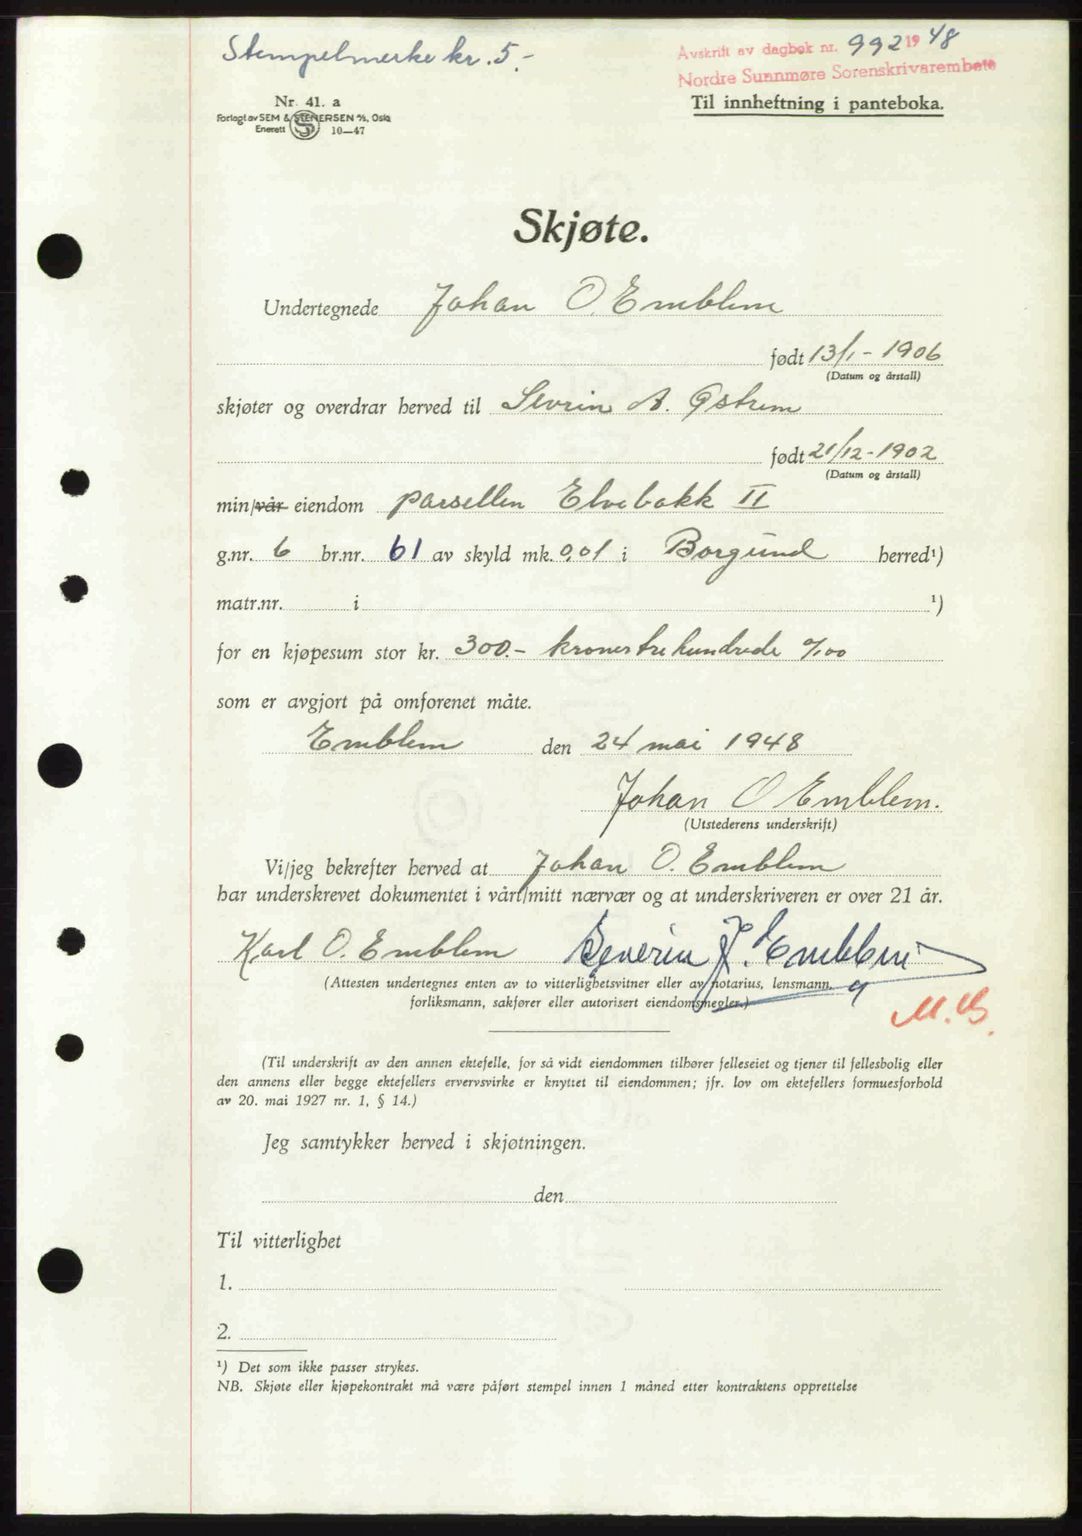 Stempelmerke kr. 5.-
Avskrift av dagbok nr. 992 1948
Nordre Sunnmøre Sorenskrivarembete
Til innheftning i panteboka.
Nr. 41. a
Forlagt av SEM & STENERSEN A/S, Oslo
Enerett 10—47
Skjøte.
Undertegnede Johan O. Emblem
født 13/1 - 1906
(Datum og årstall)
skjøter og overdrar herved til Sevrin A. Østrem
født 21/12 - 1902
(Datum og årstall)
min/vår eiendom parsellen Elvebakk II
g.nr. 6 br.nr. 61 av skyld mk. 0,01 i Borgund herred¹)
matr.nr. i ¹)
for en kjøpesum stor kr. 300.- kroner trehundrede 0/00
som er avgjort på omforenet måte.
Emblem den 24 mai 1948
Johan O Emblem.
(Utstederens underskrift)
Vi/jeg bekrefter herved at Johan O. Emblem
har underskrevet dokumentet i vårt/mitt nærvær og at underskriveren er over 21 år.
Karl O. Emblem Severin J. Emblem
(Attesten undertegnes enten av to vitterlighetsvitner eller av notarius, lensmann,
forliksmann, sakfører eller autorisert eiendomsmegler.)
M.B.
(Til underskrift av den annen ektefelle, for så vidt eiendommen tilhører felleseiet og tjener til fellesbolig eller
den annens eller begge ektefellers ervervsvirke er knyttet til eiendommen; jfr. lov om ektefellers formuesforhold
av 20. mai 1927 nr. 1, § 14.)
Jeg samtykker herved i skjøtningen.
den
Til vitterlighet
1.
2.
¹) Det som ikke passer strykes.
NB. Skjøte eller kjøpekontrakt må være påført stempel innen 1 måned etter kontraktens opprettelse